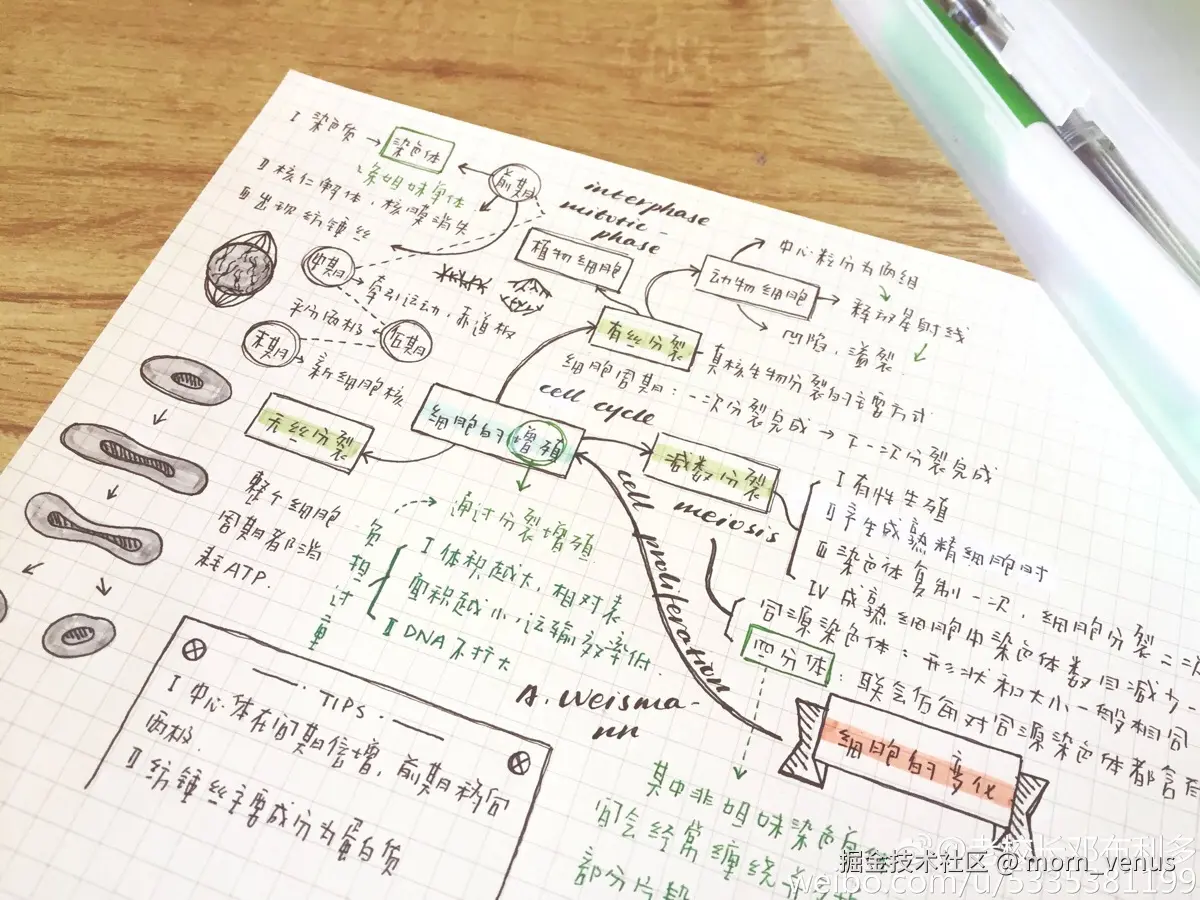 I 染色质 → 染色体
2条姐妹单体
前期
II 核仁解体，核膜消失
III 出现纺锤丝
interphase
mitotic-
phase
中期
牵引运动，赤道板
平分两极
后期
末期
新细胞核
植物细胞
动物细胞
中心粒分为两组
释放星射线
凹陷，溢裂
有丝分裂
真核生物分裂的主要方式
细胞周期：一次分裂完成 → 下一次分裂完成
cell cycle
无丝分裂
细胞的增殖
减数分裂
meiosis
整个细胞
周期都消
耗ATP.
通过分裂增殖
负担过重
I 体积越大，相对表
面积越小，运输效率低
II DNA不扩大
cell proliferation
I 有性生殖
II 产生成熟精细胞时
III 染色体复制一次，细胞分裂二次
IV 成熟细胞中染色体数目减少一
同源染色体：形状和大小一般相同
四分体：联会后每对同源染色体都含有
A. Weisma-
nn
细胞的变化
其中非姐妹染色
间会经常缠绕
部分片段
TIPS
I 中心体在间期倍增，前期移向
两极.
II 纺锤丝主要成分为蛋白质
掘金技术社区 @ morn_venus
weibo.com/u/5335581199